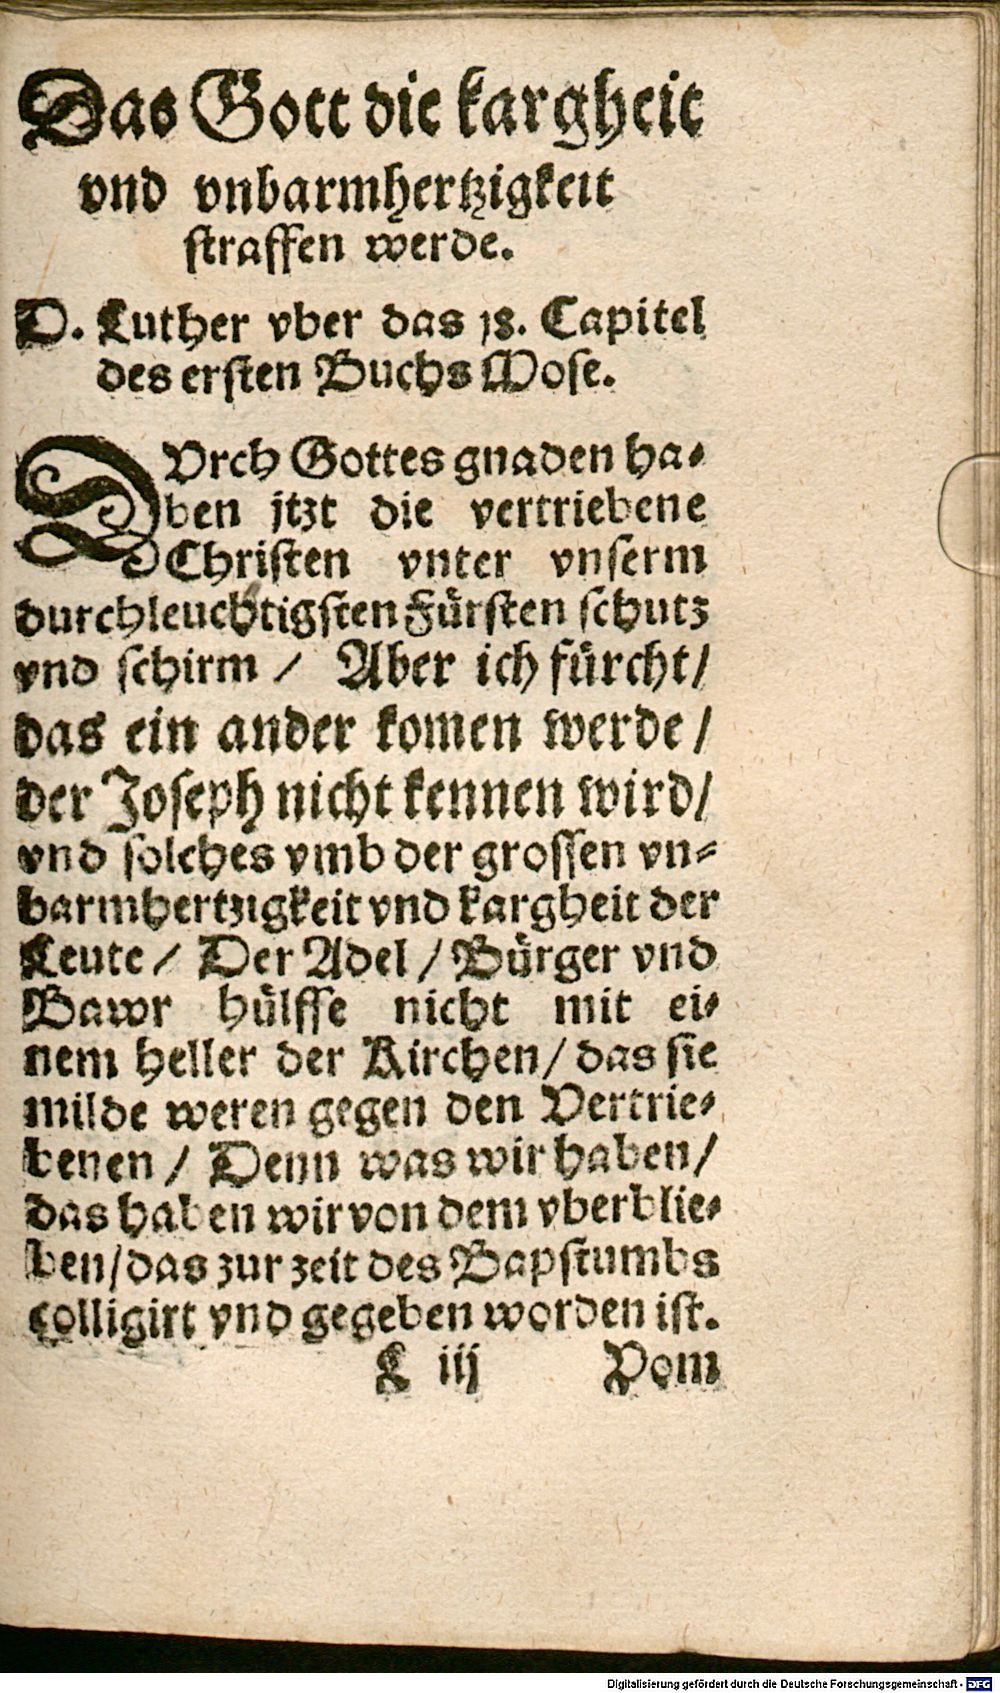 Das Gott die kargheit
vnd vnbarmhertzigkeit
straffen werde.
D. Luther vber das 18. Capitel
des ersten Buchs Mose.
DVrch Gottes gnaden ha-
ben jtzt die vertriebene
Christen vnter vnserm
durchleuchtigsten Fürsten schutz
vnd schirm / Aber ich fürcht/
das ein ander komen werde/
der Joseph nicht kennen wird/
vnd solches vmb der grossen vn-
barmhertzigkeit vnd kargheit der
Leute / Der Adel / Bürger vnd
Bawr hülffe nicht mit ei-
nem heller der Kirchen/ das sie
milde weren gegen den Vertrie-
benen / Denn was wir haben/
das haben wir von dem vberblie-
ben/das zur zeit des Bapstumbs
colligirt vnd gegeben worden ist.
L iij Vom
Digitalisierung gefördert durch die Deutsche Forschungsgemeinschaft - DFG